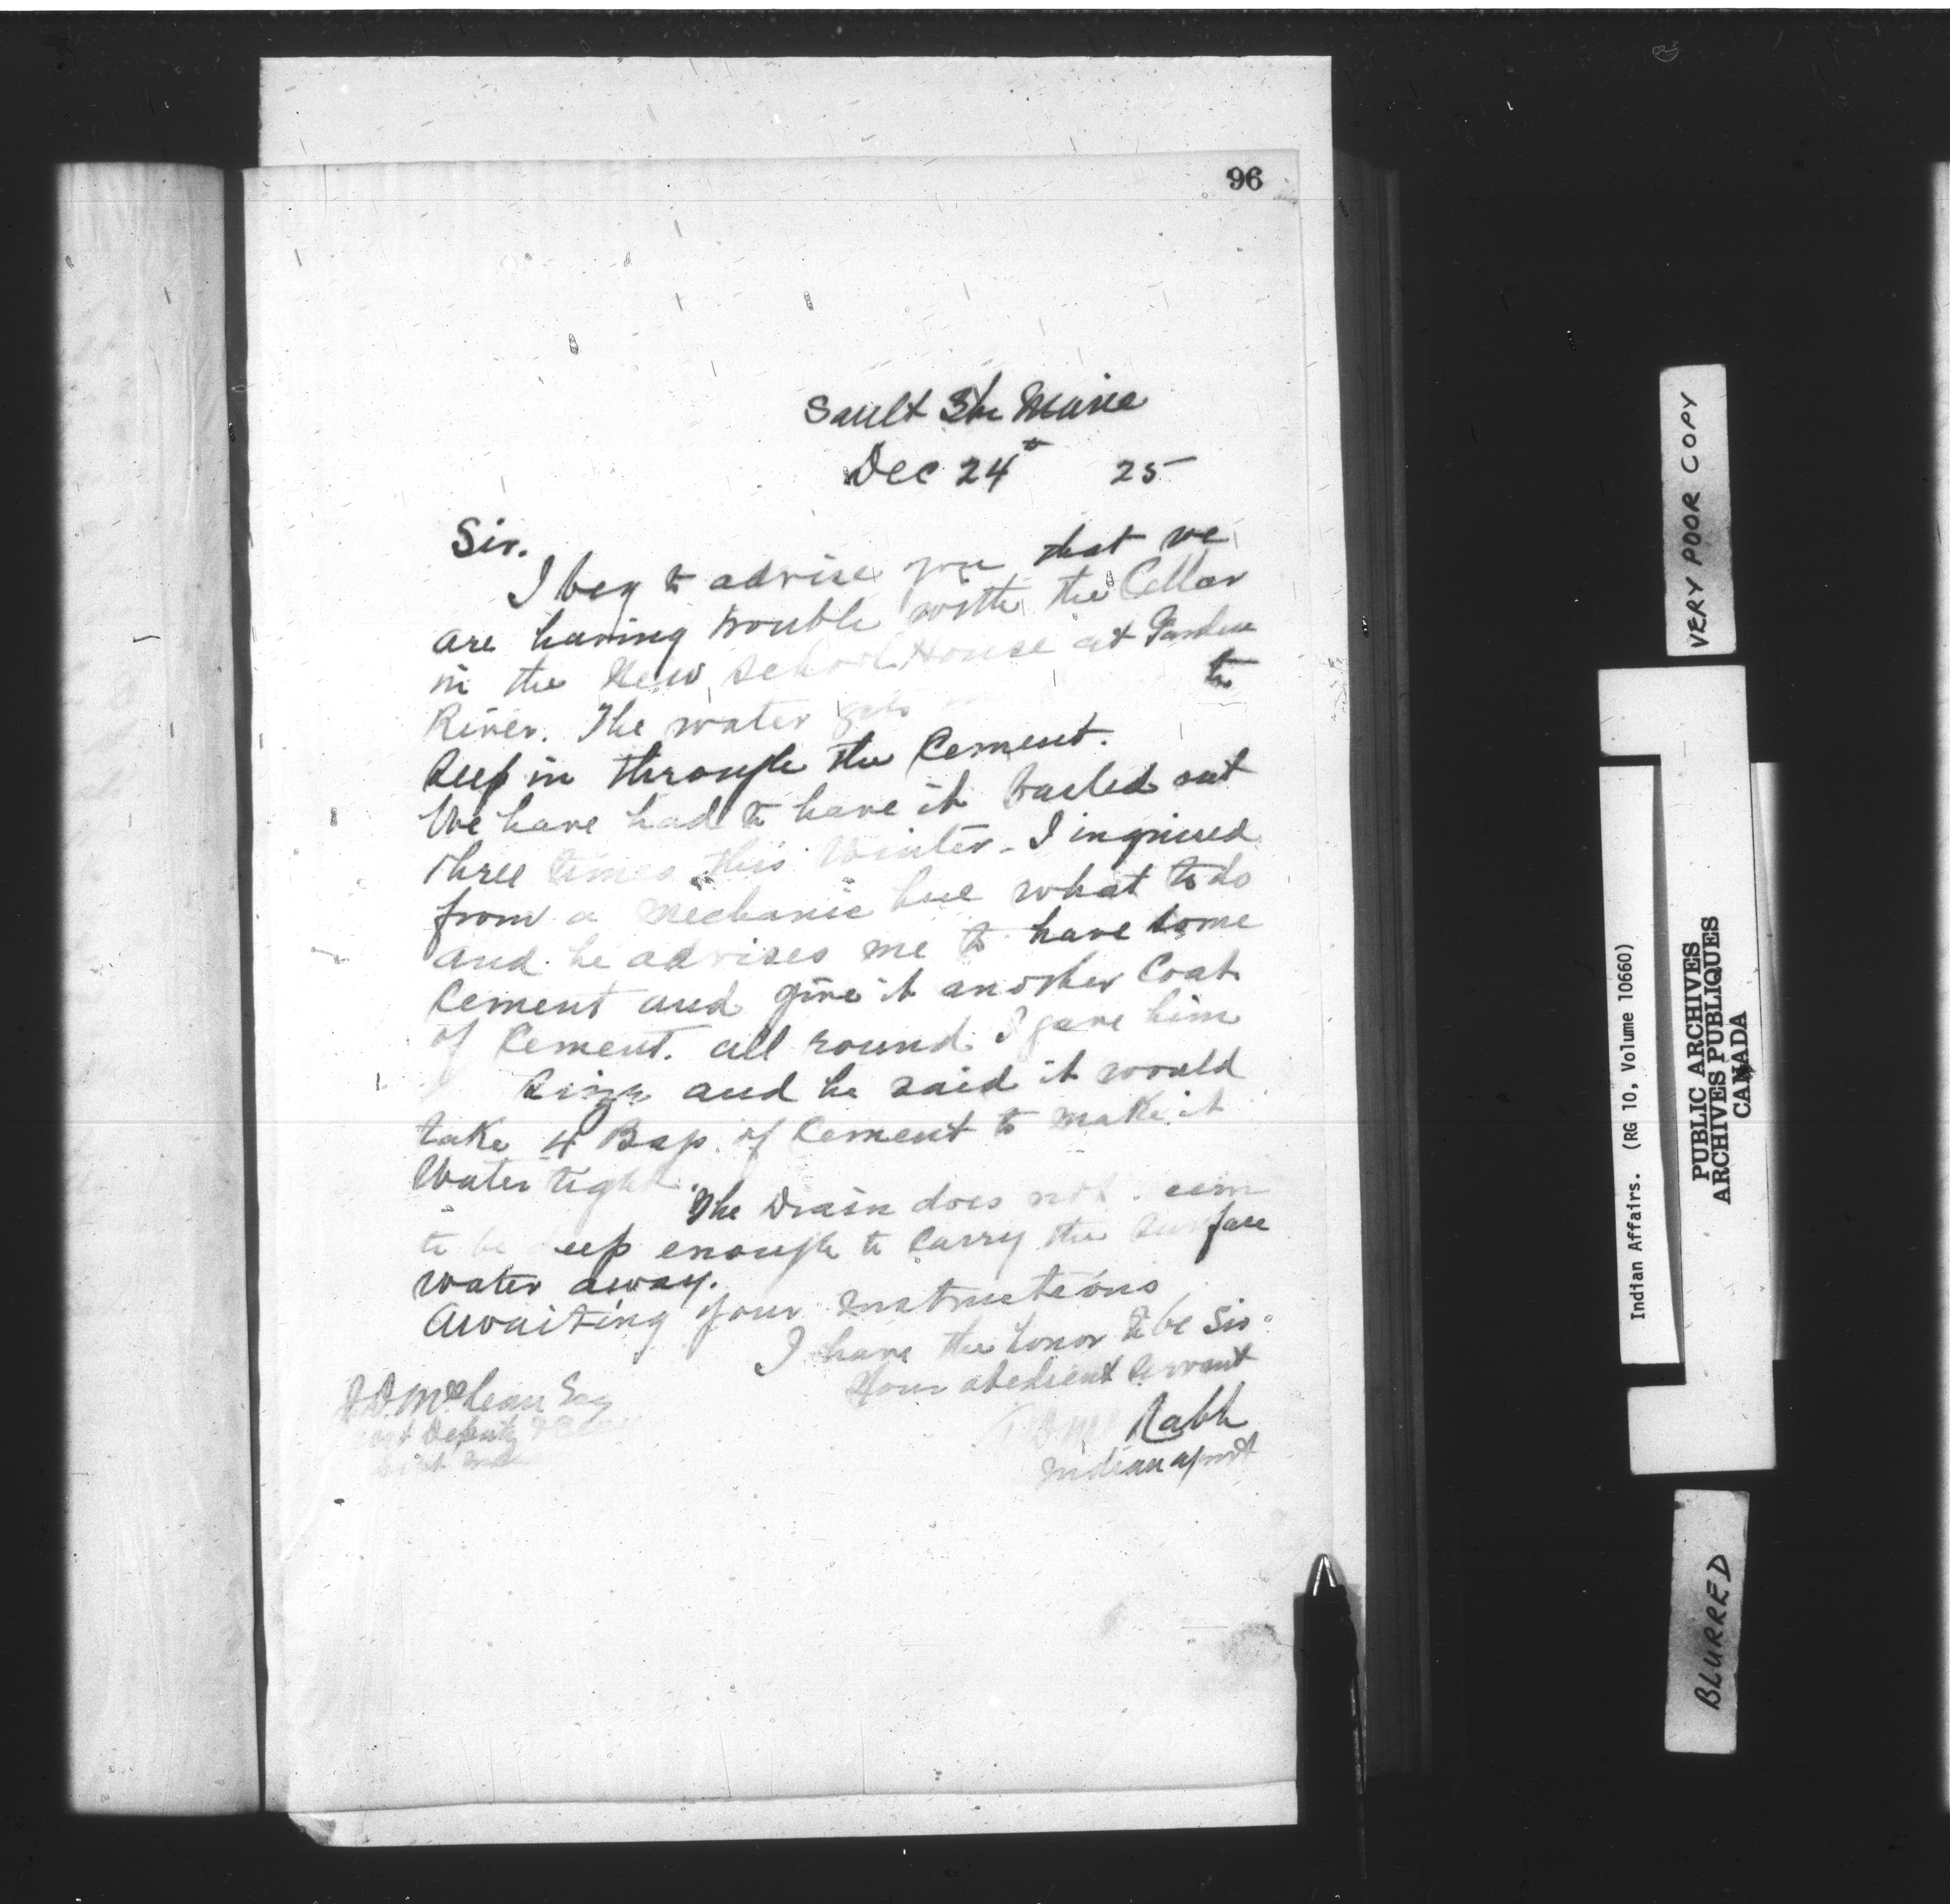 96
Sault Ste Marie
Dec 24th 25
Sir.
I beg to advise you that we
are having trouble with the Cellar
in the New School House at Garden
River. The water gets to
Seep in through the Cement.
We have had to have it Bailed out
three times this Winter. I inquired
from a Mechanic here what to do
and he advises me to have some
Cement and give it another Coat
of Cement. all round I gave him
Size and he said it would
take 4 Bags of Cement to make it
Water tight.
The Drain does not seem
to be deep enough to Carry the Surface
water away.
Awaiting your Instructions
I have the honor to be Sir
Your obedient Servant
J.D. McLean Esq
Asst Deputy &
Rabb
Indian agent
VERY POOR COPY
Indian Affairs. (RG 10, Volume 10660)
PUBLIC ARCHIVES
ARCHIVES PUBLIQUES
CANADA
BLURRED